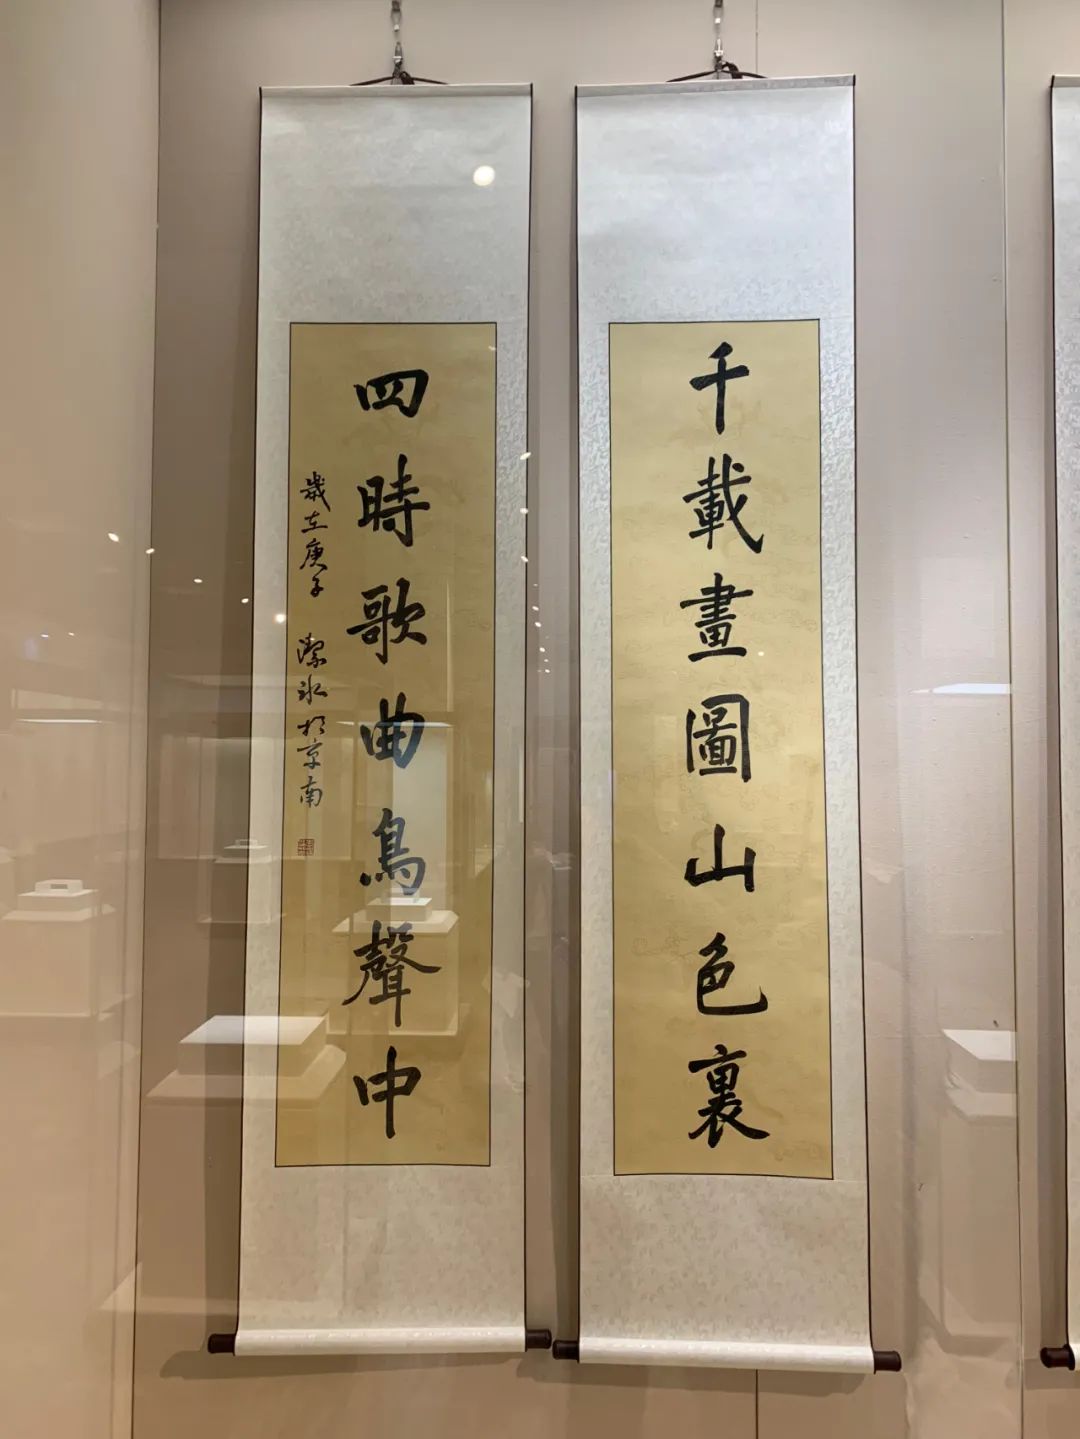 千載畫圖山色裏
四時歌曲鳥聲中
歲在庚子 潔冰於京南